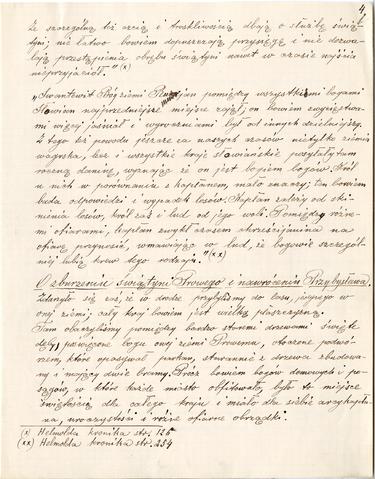 4.
Ze szczególną też czcią i troskliwością dbają o służbę świąt-
tyni; nie łatwo bowiem dopuszczają przysięgę i nie dozwa-
lają przestąpienia obrębu świątyni nawet w czasie wyścia
nieprzyjaciół." (x)
"Swantewit Bóg ziemi Rugijan pomiędzy wszystkiemi bogami
Słowian najprzedniejsze miejsce zajął, on bowiem zwycięztwa-
mi więcej jaśniał i wyroczniami był od innych dzielniejszy.
Z tego też powodu jeszcze za naszych czasów nietylko ziemia
wagrska, lecz i wszystkie kraje słowiańskie posyłały tam
roczną daninę, wyznając że on jest bogiem bogów. Król
u nich w porównaniu z kapłanem, mało znaczy; ten bowiem
bada odpowiedzi i wypadek losów. Kapłan zależy od ski-
nienia losów, król zaś i lud od jego woli. Pomiędzy różne-
mi ofiarami, kapłan zwykł czasem chrześcijanina na
ofiarę przynosić, wmawiając w lud, że bogowie szczegól-
niej lubią krew tego rodzaju." (xx)
O zburzeniu świątyni Prowego i nawróceniu Przybysława.
Zdarzyło się zaś, że w drodze przybyliśmy do lasu, jedynego w
onej ziemi, cały kraj bowiem jest wielką płaszczyzną.
Tam obaczyliśmy pomiędzy bardzo staremi drzewami święte
dęby poświęcone bogu onej ziemi Prowemu, otoczone podwó-
rzem, które opasywał parkan, starannie z drzewa zbudowa-
ny i mający dwie bramy. Prócz bowiem bogów domowych i po-
sągów, w które każde miasto obfitowało, było to miejsce
świętością dla całego kraju i miało dla siebie arcykapła-
na, uroczystości i różne ofiarne obrządki.
(x) Helmolda kronika str. 126
(xx) Helmolda kronika str. 254